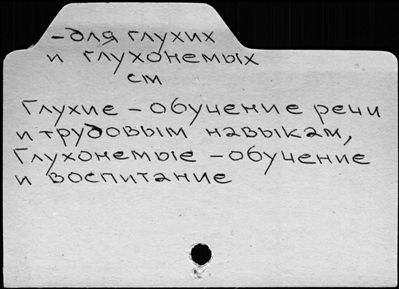 -для глухих
и глухонемых
см
Глухие - обучение речи
и трудовым навыкам,
Глухонемые - обучение
и воспитание